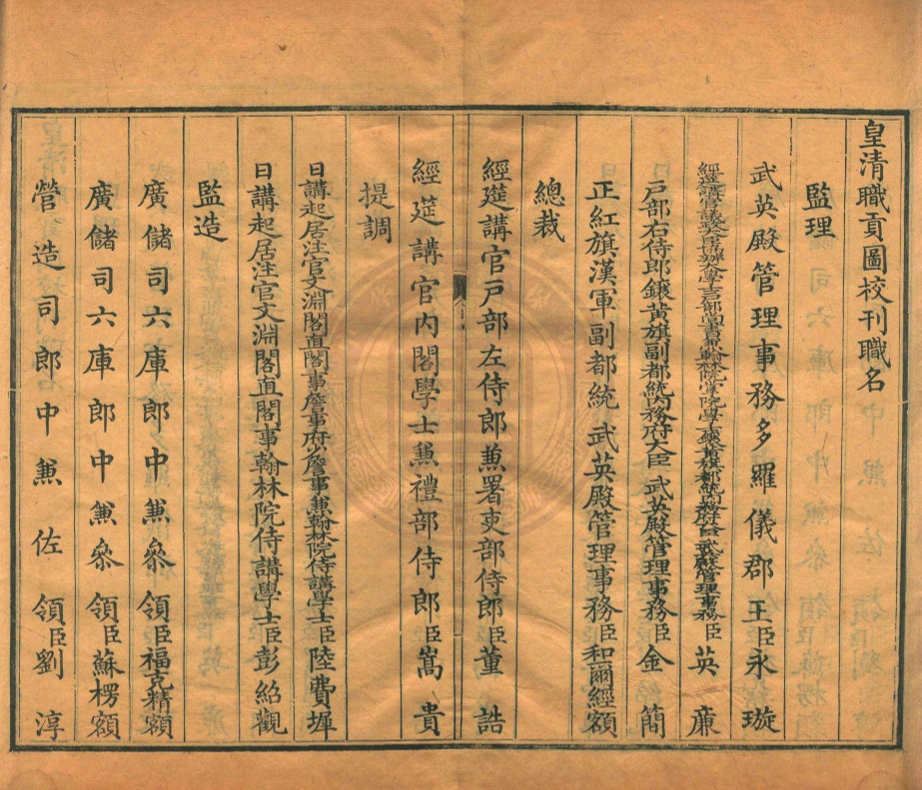 皇清職貢圖校刊職名
監理
武英殿管理事務多羅儀郡王臣永璇
經筵講官議政大臣協辦大學士吏部尚書兼翰林院掌院學士鑲黃旗都統內務府大臣武英殿管理事務臣英廉
戶部右侍郎鑲黃旗副都統內務府大臣武英殿管理事務臣金簡
正紅旗漢軍副都統武英殿管理事務臣和爾經額
總裁
經筵講官戶部左侍郎兼署吏部侍郎臣董誥
經筵講官內閣學士兼禮部侍郎臣嵩貴
提調
日講起居注官文淵閣直閣事詹事府少詹事兼翰林院侍講學士臣陸費墀
日講起居注官文淵閣直閣事翰林院侍講學士臣彭紹觀
監造
廣儲司六庫郎中兼叅領臣福克精額
廣儲司六庫郎中兼叅領臣蘇楞額
營造司郎中兼佐領臣劉淳